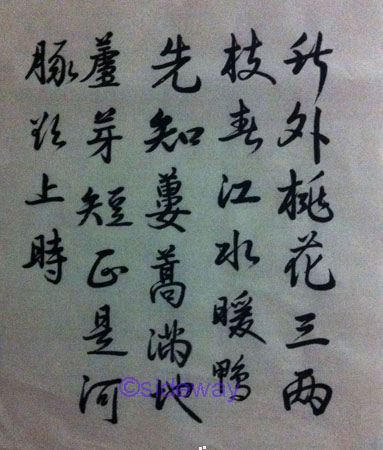 竹外桃花三两
枝春江水暖鴨
先知蔞蒿滿地
蘆芽短正是河
豚欲上時
©sideway